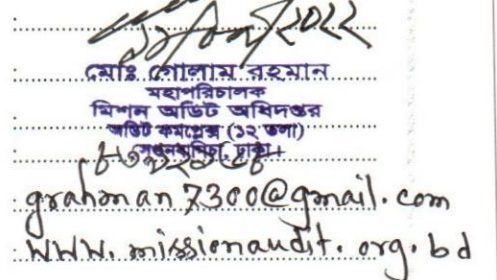 মোঃ গোলাম রহমান
মহাপরিচালক
মিশন অডিট অধিদপ্তর
অডিট কমপ্লেক্স (১২ তলা)
সেগুনবাগিচা, ঢাকা।
grahman7300@gmail.com
www.missionaudit.org.bd